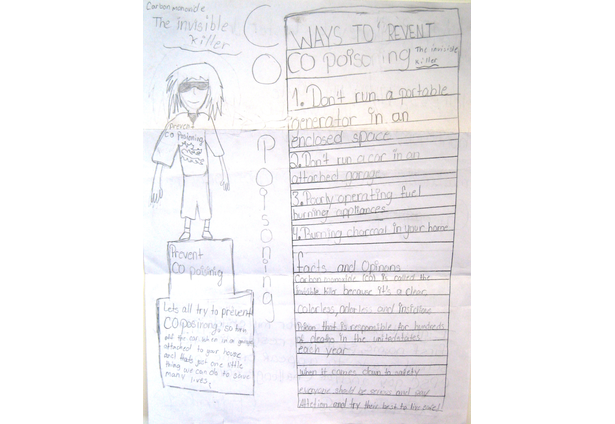 Carbon monoxide
The invisible
killer
Prevent
CO poisoning
Prevent
CO poisoning
Lets all try to prevent
CO posinrong, so turn
off the car when in a garage
attached to your house
and thats just one little
thing we can do to save
many lives.
CO
Poisoning
WAYS TO PREVENT
CO poisoning The invisible
killer
1. Don't run a portable
generator in an
enclosed space
2. Don't run a car in an
attached garage
3. Poorly operating fuel
burning appliances
4. Burning charcoal in your home
facts and Opinons
Carbon monoxide is called the
invisible killer because it's a clear
colorless, odorless and
Poison that is responsible for hundreds
of death in the united states
each year
when it comes down to safety
everyone should be and pay
Attetion and try their best to be safe!